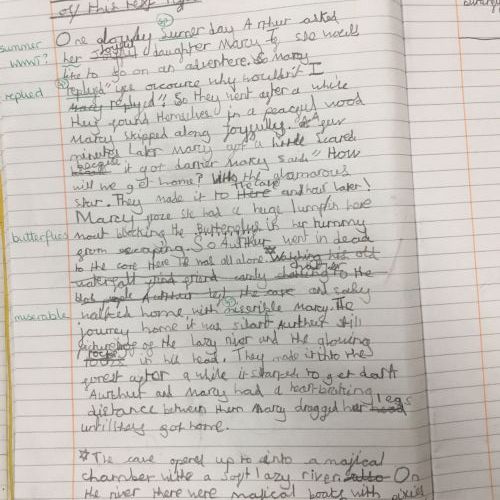 of this text
One gloomy Summer day Arther asked
summer
her Joyful daughter Mary to see would
WWWT?
like to go on an adventere. So Mary
replyed
replyed "yes ofcource why wouldn't I
Mary replyed". So they went after a while
they found themselves in a peaceful wood
Marcy skipped along Joyfully. A few
minutes later Marcy got a little scared
because it got darker Mary said "How
will we get home? With the glamarous
star. They made it to there the cave and hour later!
Marcy froze she had a huge lump in here
butterflies
mout blocking the Butterflys in her tummy
from escaping. So Authur went in dead
to the cave. Here he was all alone. * Watching his old
waterfall
black Authur left the cave and sadly
miserable
walked home with miserible Marcy. The
journey home it was silant Authurs still
pictureing of the lazy river and the glowing
rocks in his head. They made it into the
forest after a while it started to get dark
Authur and Marcy had a heartbreaking
distance between them Marcy dragged her legs
until they got home.
* The cave opened up to into a majical
chamber withe a soft lazy river. On
the river there were magical boats with